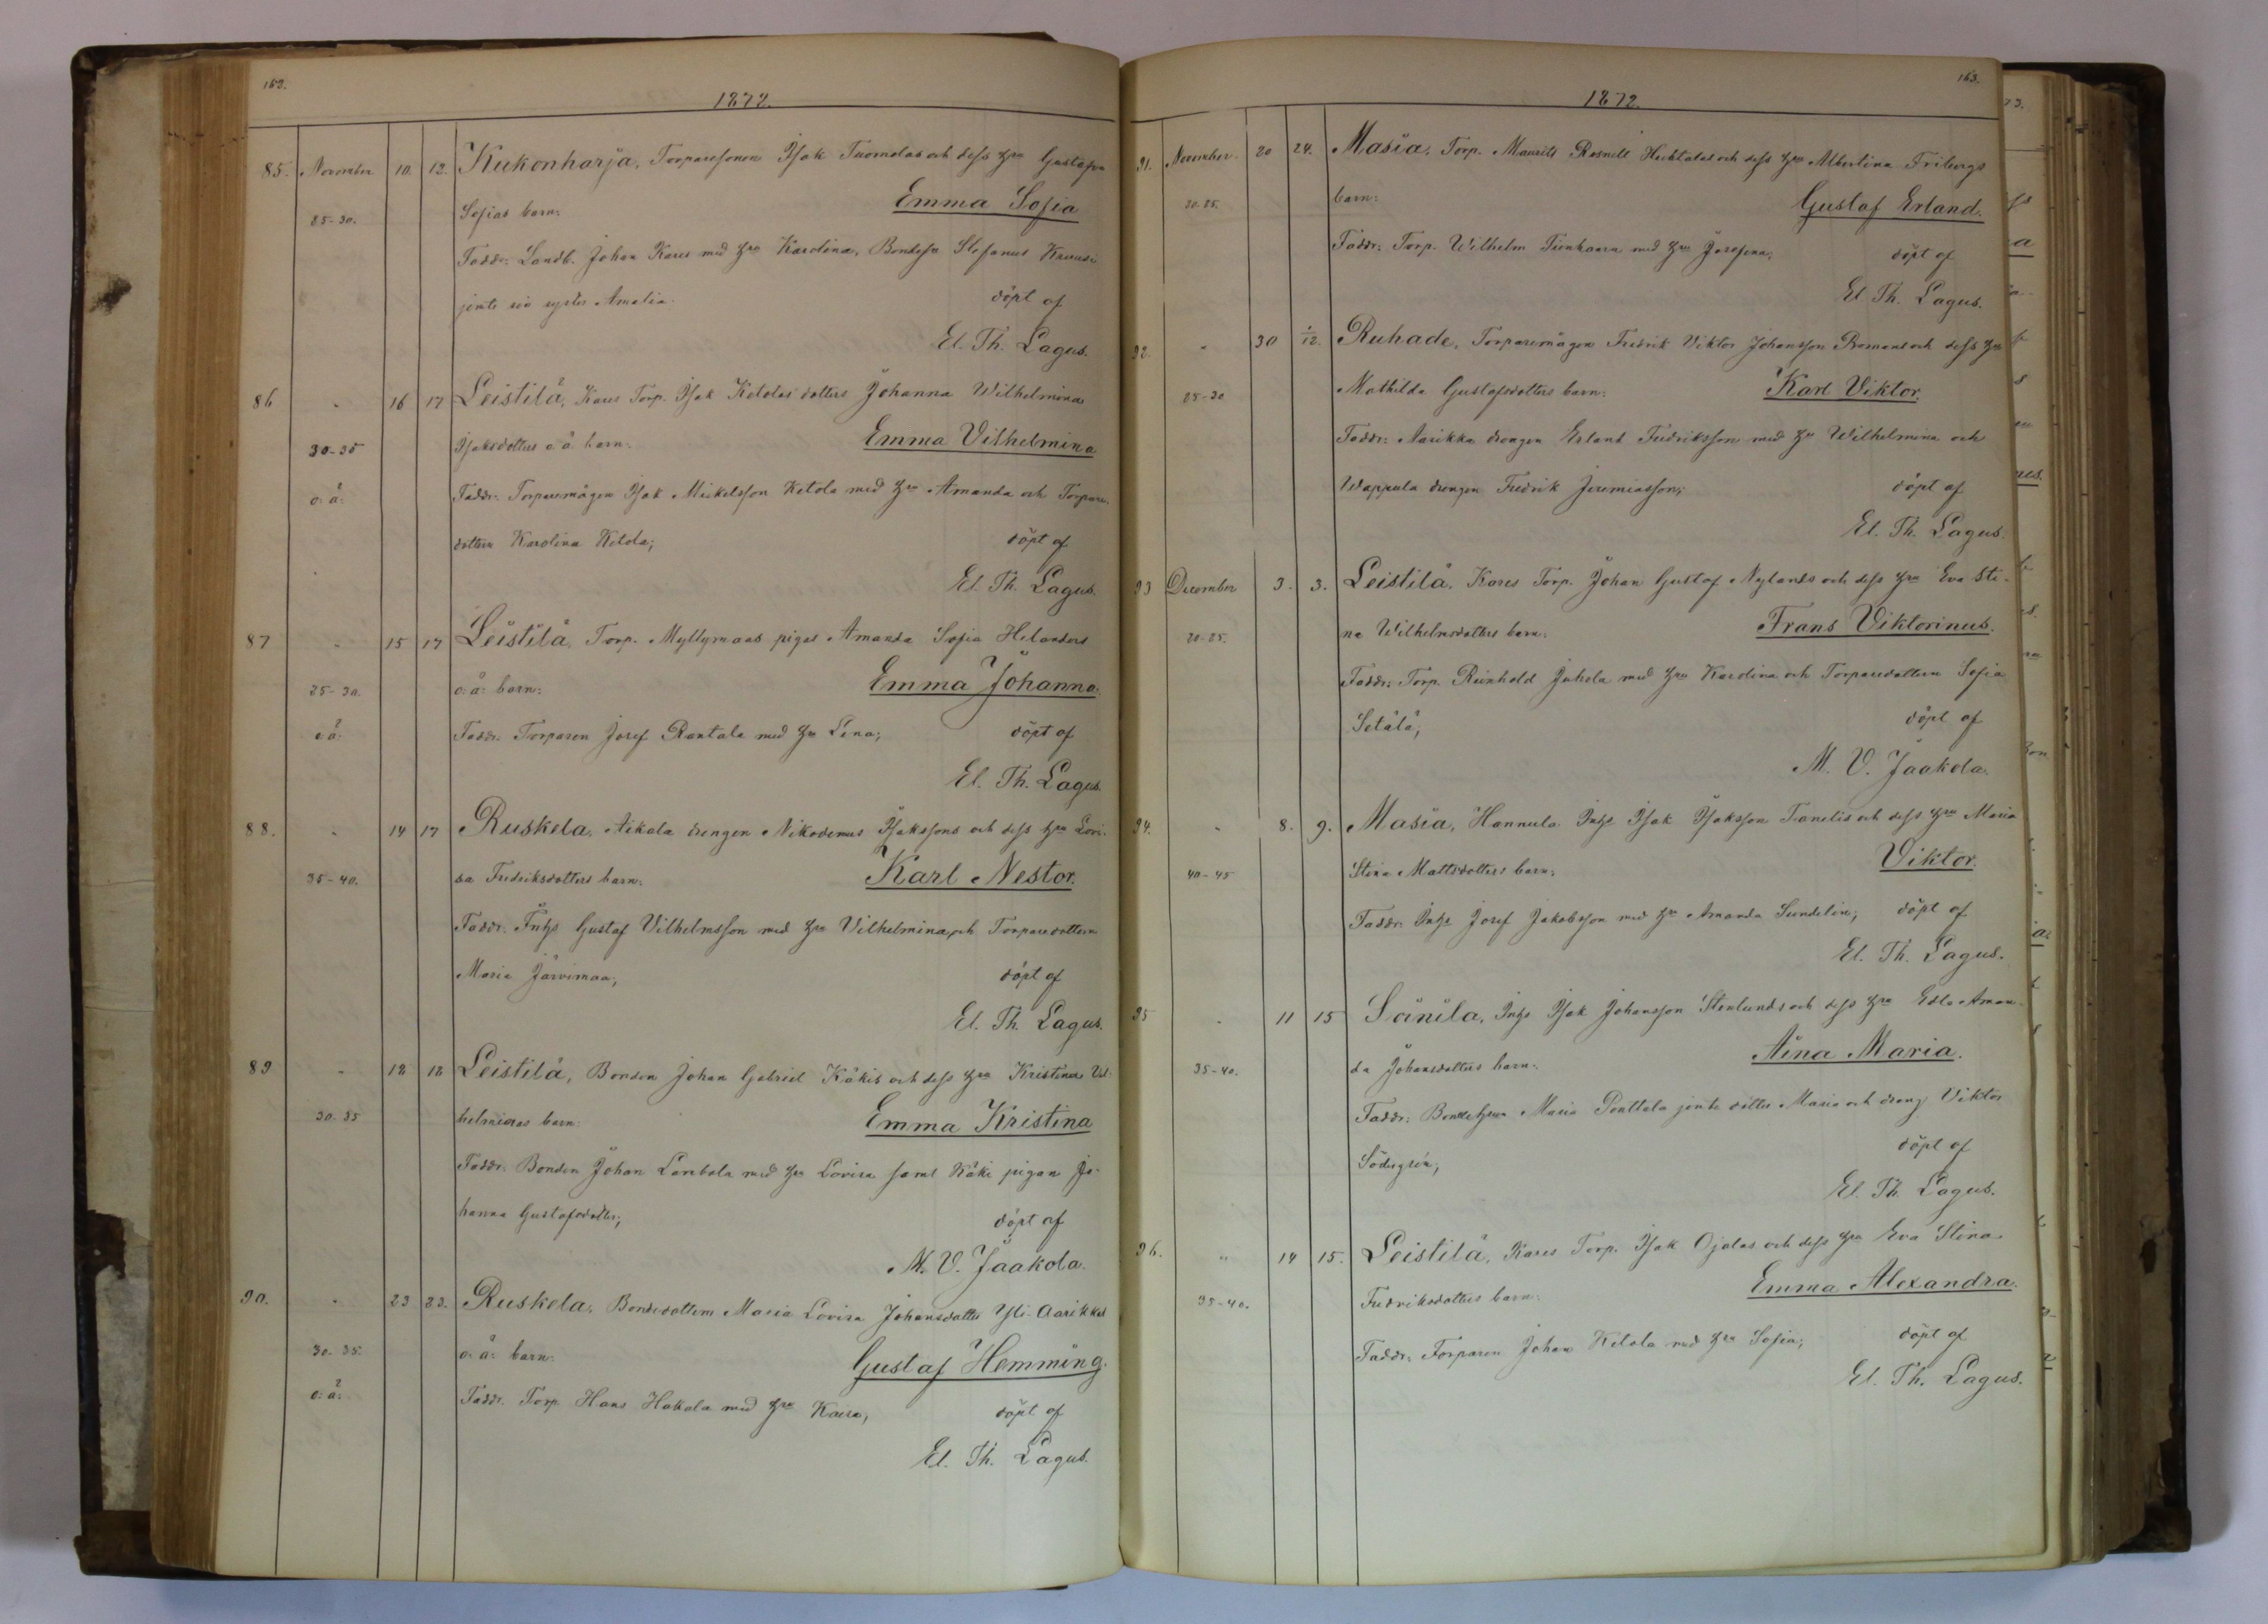 163.
1872.
85. November 10. 12. Kukonharja, Torparesonen Isak Tuomolas och dess hru Gustafva
25-30. Sofias barn: Emma Sofia
Faddr: Landb. Johan Kares med hru Karolina, Bondeson Stefanus
jemte sin syster Amalia. döpt af
El. Th. Lagus.
86 " 16 17 Leistilä, Kares Torp. Isak Ketolas dotters Johanna Wilhelmina
30-35 Isaksdotters o ä barn: Emma Vilhelmina
o: ä: Faddr: Torparemågen Isak Mickelsson Ketola med hru Amanda och Torpare-
dottern Karolina Ketola; döpt af
El. Th. Lagus.
87 " 15 17 Leistilä, Torp. Myllymaas pigas Amanda Sofia Helanders
25-30. o: ä: barn: Emma Johanna.
o: ä: Faddr: Torparen Josef Rantala med hru Lena; döpt af
El. Th. Lagus.
88. " 14 17 Ruskela, Aikala drengen Nikodemus Isakssons och dess hru Lovi-
35-40. sa Fredriksdotters barn: Karl Nestor.
Faddr: Inhs Gustaf Vilhelmsson med hru Vilhelmina, och Torparedottern
Maria Järvimaa; döpt af
El. Th. Lagus.
89 " 18 18 Leistilä, Bonden Johan Gabriel Käkis och dess hru Kristina Vil-
30-35 helminas barn: Emma Kristina
Faddr: Bonden Johan Lambola med hru Lovisa samt Käki pigan Jo-
hanna Gustafsdotter; döpt af
M. V. Jaakola.
90. " 23 23. Ruskela, Bondedottern Maria Lovisa Johansdotter Yli-Aarikkas
30-35. o: ä: barn: Gustaf Hemming.
o: ä: Faddr: Torp. Hans Hakala med hru Kaisa; döpt af
El. Th. Lagus.
163.
1872.
91. November. 20 24. Masia, Torp. Maurits Rosnell Huhtalas och dess hru Albertina Fribergs
20-25. barn: Gustaf Erland.
Faddr: Torp. Wilhelm Tienhaara med hru Josefina; döpt af
El. Th. Lagus.
92. " 30 1/12. Ruhade, Torparemågen Fredrik Viktor Johansson Bromans och dess hru
25-30 Mathilda Gustafsdotters barn: Karl Viktor.
Faddr: Aarikka drengen Erland Fredriksson med hru Wilhelmina och
Wappula drengen Fredrik Jeremiasson; döpt af
El. Th. Lagus.
93 December 3. 3. Leistilä, Kares Torp. Johan Gustaf Nylands och dess hru Eva Sti-
20-25. na Wilhelmsdotters barn: Frans Viktorinus.
Faddr: Torp. Reinhold Juhola med hru Karolina och Torparedottern Sofia
Setälä; döpt af
M. V. Jaakola.
94. " 8. 9. Masia, Hannula Inhs Isak Isaksson Tanelis och dess hru Maria
40-45 Stina Mattsdotters barn: Viktor.
Faddr: Inhs Josef Jakobsson med hru Amanda Sundelin; döpt af
El. Th. Lagus.
95 " 11 15 Sänilä, Inhs Isak Johansson Stenlunds och dess hru Edla Aman-
35-40. da Johansdotters barn: Aina Maria.
Faddr: Bondehru Maria Penttala jemte dotter Maria och dreng Viktor
döpt af
El. Th. Lagus.
96. " 14 15. Leistilä, Kares Torp. Isak Ojalas och dess hru Eva Stina
35-40. Fredriksdotters barn: Emma Alexandra.
Faddr: Torparen Johan Ketola med hru Sofia; döpt af
El. Th. Lagus.